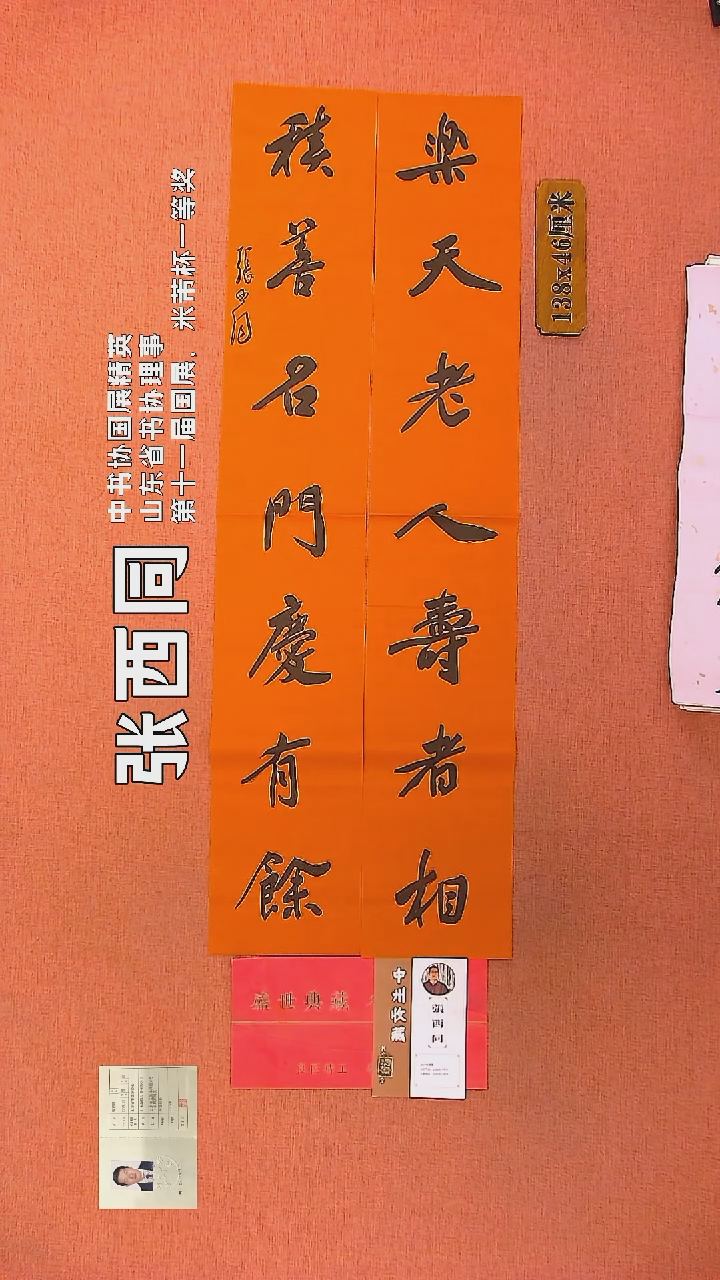 樂天老人壽者相
積善名門慶有餘
張西同
138x46厘米
张西同
中书协国展精英
山东省书协理事
第十一届国展、米芾杯一等奖
盛世典藏
中州收藏
張西同